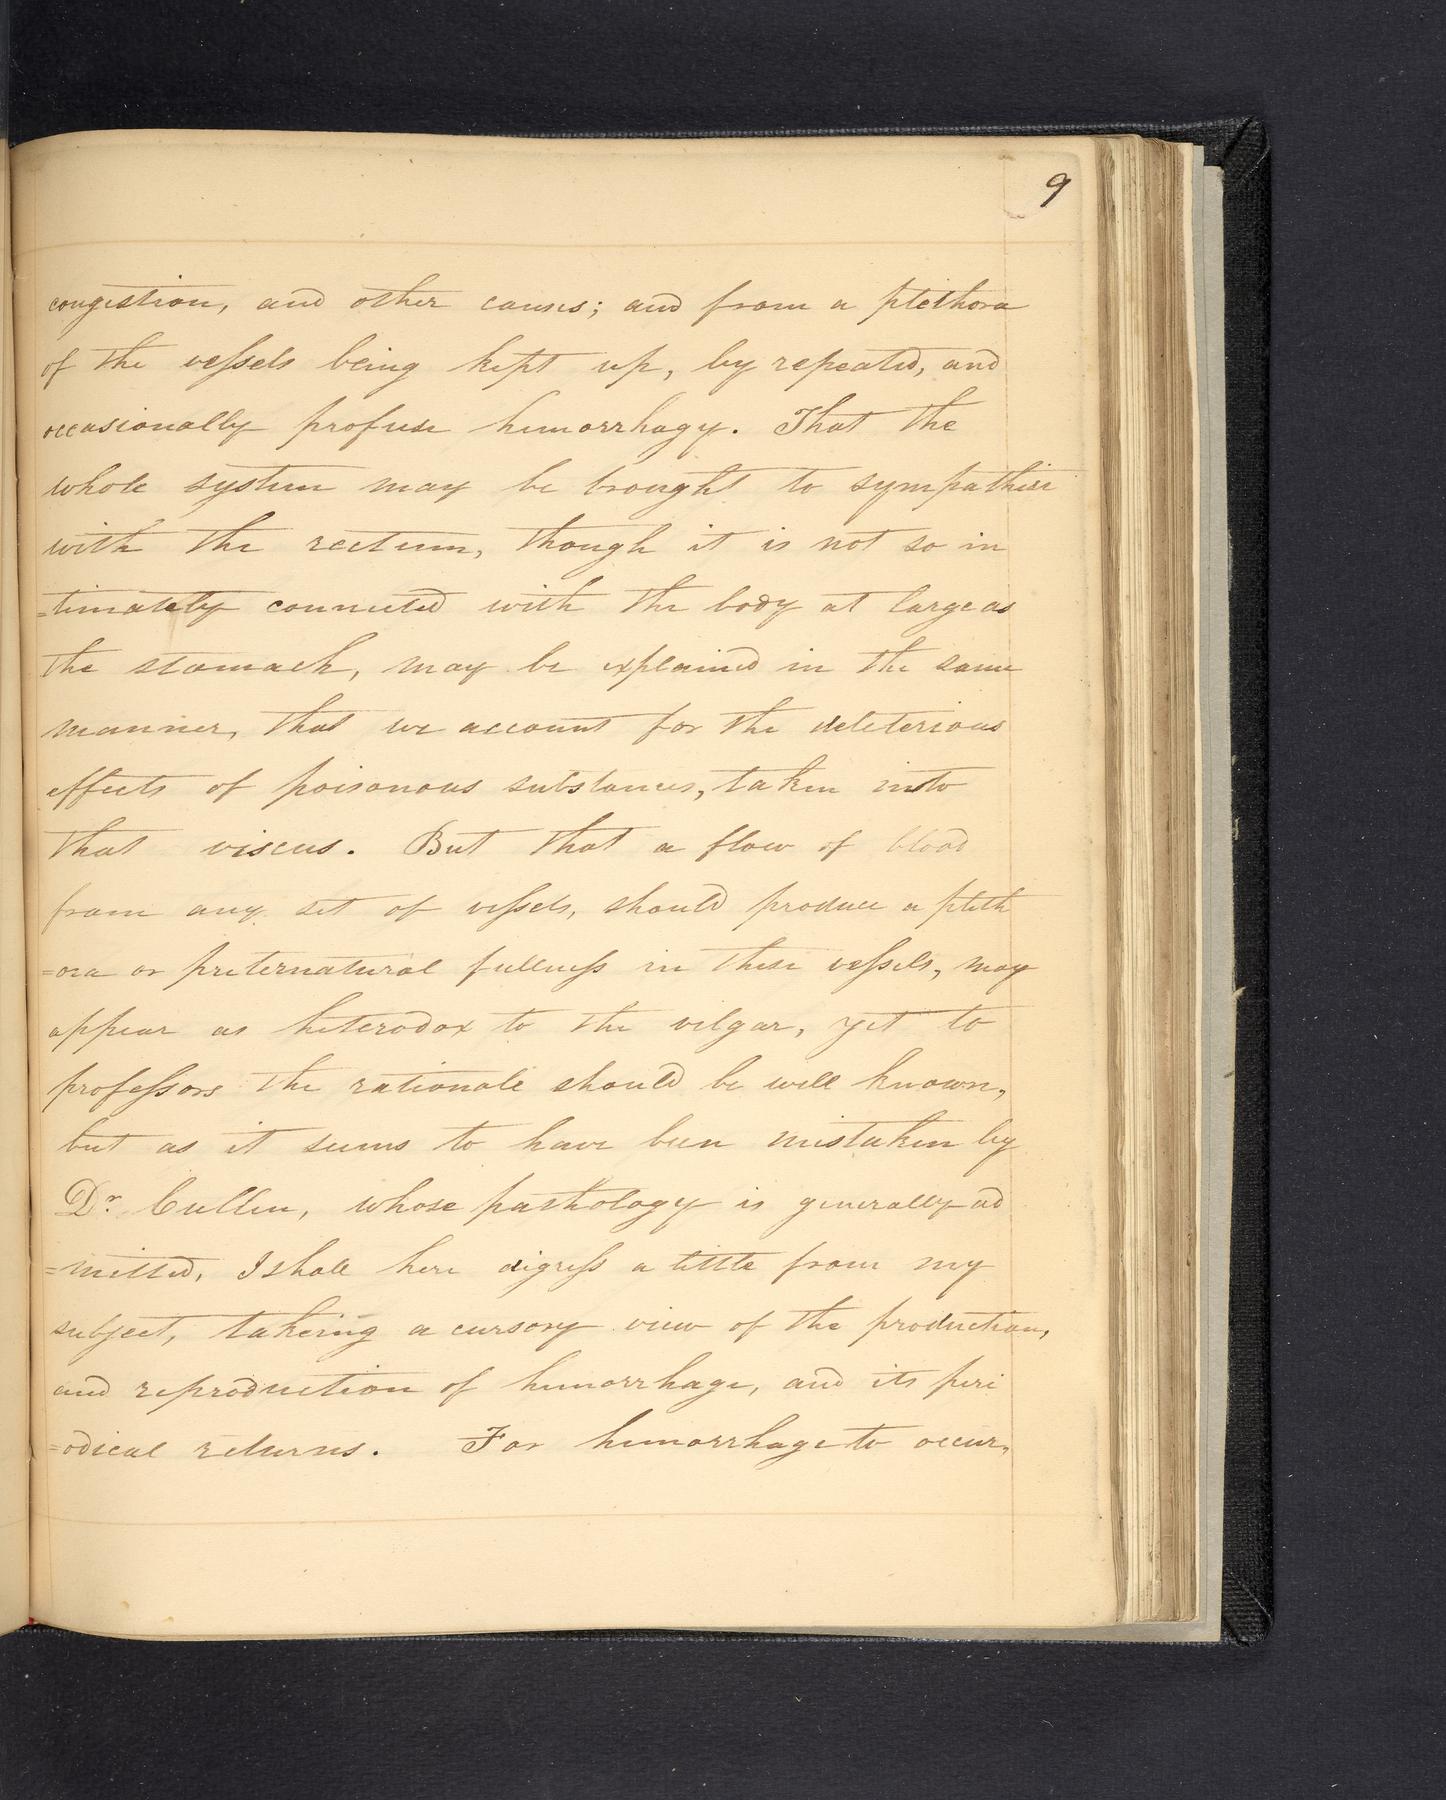 9
congestion, and other causes; and from a plethora
of the vessels being kept up, by repeated, and
occasionally profuse hemorrhagy. That the
whole system may be brought to sympathise
with the rectum, though it is not so in
=timately connected with the body at large as
the stomach, may be explained in the same
manner, that we account for the deleterious
effects of poisonous substances, taken into
that viscus. But that a flow of blood
from any set of vessels, should produce a pleth
=ora or preternatural fullness in these vessels, may
appear as heterodox to the vilgar, yet to
professors the rationale should be well known,
but as it seems to have been mistaken by
Dr. Cullen, whose pathology is generally ad
=mitted, I shall here digress a little from my
subject, takeing a cursory view of the production,
and reproduction of hemorrhage, and its peri
=odical returns. For hemorrhage to occur,